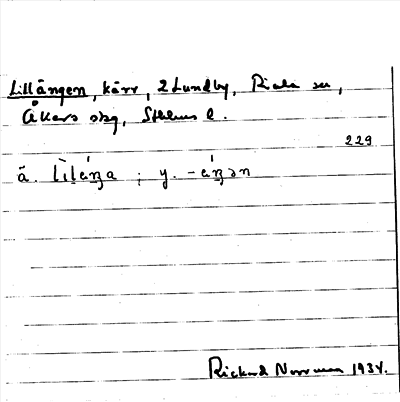 Lillängen, kärr, 2 Lundby, Riala sn,
Åkers sbg, Sthlms l.
229
ä. l̀ìlǻŋa ; y. -ǻŋən
Rickard Norrman 1934.